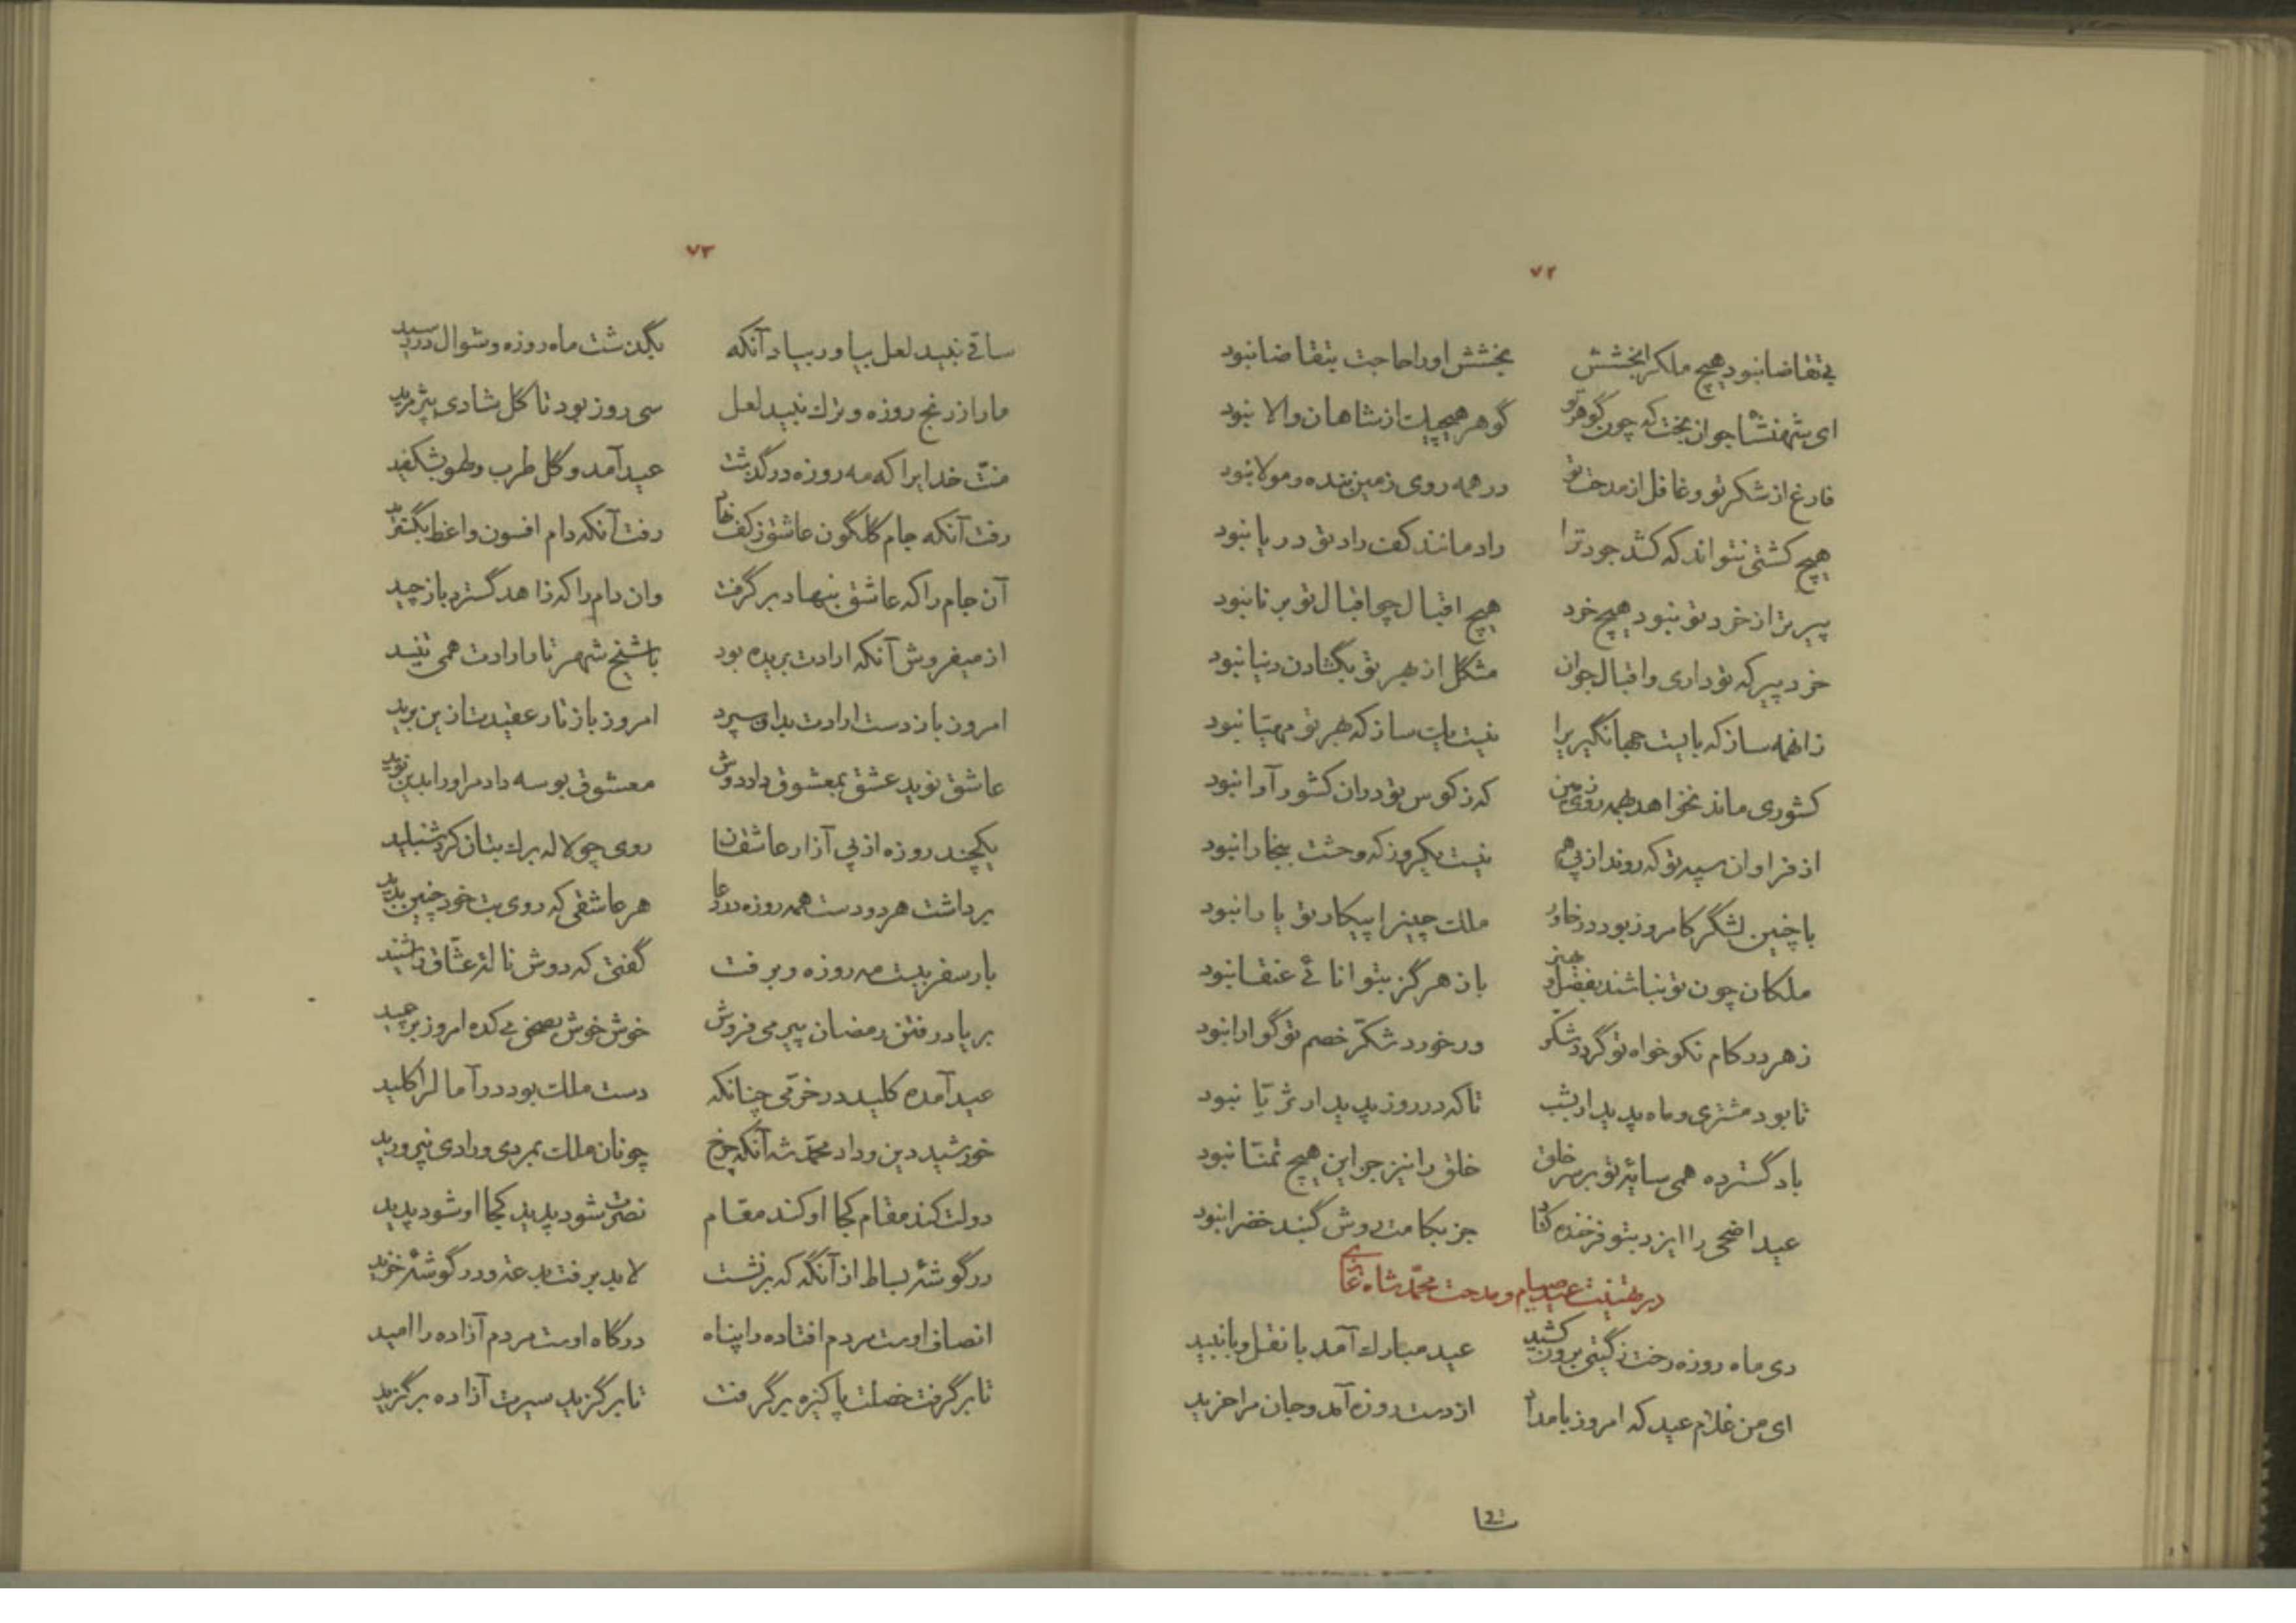 ٧٢
بی تقاضا نبود هیچ ملک را بخشش بخشش او را حاجت بتقاضا نبود
ای شهنشاه جوان بخت که چون گوهر تو گوهر هیچیک از شاهان والا نبود
فارغ از شکر تو و غافل از مدحت تو در همه روی زمین بنده و مولا نبود
هیچ کشتی نتواند که کشد جود ترا راد مانند کف راد تو دریا نبود
پیرتر از خرد تو نبود هیچ خرد هیچ اقبال چو اقبال تو برنا نبود
خرد پیر که تو داری و اقبال جوان مشکل از بهر تو بگشادن دنیا نبود
زانهمه ساز که بایست جهانگیریرا نیست یک ساز که بهر تو مهیّا نبود
کشوری ماند نخواهد بهمه روی زمین که ز کوس تو در آن کشور آوا نبود
از فراوان سپه تو که روند از پی هم نیست یکروز که وحشت ببخارا نبود
با چنین لشگر کامروز بود در خاور ملک چین را پیکار تو یارا نبود
ملکان چون تو نباشند بفضل و هنر باز هرگز بتوانائی عنقا نبود
زهر در کام نکو خواه تو گردد شکر ور خورد شکّر خصم تو گوارا نبود
تا بود مشتری و ماه پدیدار بشب تا که در روز پدیدار ثریّا نبود
باد گسترده همی سایهٔ تو بر سر خلق خلق را نیز جز این هیچ تمنّا نبود
عید اضحی را ایزد بتو فرخنده کناد جز بکامت روش گنبد خضرا نبود
در تهنیت عید صیام و مدحت محمّد شاه غازی
دی ماه روزه رخت ز گیتی برون کشید عید مبارک آمد با نقل و با نبید
ای من غلام عید که امروز بامداد از دست روزه آمد و جان مرا خرید
ساقی
٧٣
ساقی نبید لعل بیاور بیاد آنکه بگذشت ماه روزه و شوال در رسید
ما را ز رنج روزه و ترک نبید لعل سی روز بود تا گل شادی بپژمرید
منّت خدایرا که مه روزه درگذشت عید آمد و گل طرب و لهو بشکفید
رفت آنکه جام گلگون عاشق ز کف نهاد رفت آنکه دام افسون واعظ بگسترید
آن جام را که عاشق بنهاد برگرفت وان دام را که زاهد گسترد باز چید
از میفروش آنکه ارادت بریده بود با شیخ شهر تار ارادت همی تنید
امروز باز دست ارادت بدو سپرد امروز باز تار عقیدت از این برید
عاشق نوید عشق بمعشوق داد دوش معشوق بوسه داد مر او را بدین نوید
یکچند روزه از پی آزار عاشقان روی چو لاله برگ بتان کرد شنبلید
برداشت هر دو دست همه روزه در دعا هر عاشقی که روی بت خود چنین بدید
گفتی که دوش نالهٔ عشّاق را شنید بار سفر ببست مه روزه و برفت
بر یاد رفتن رمضان پیر می فروش خوش خوش بصحن میکده امروز برچمید
عید آمده کلید در خرّمی چنانکه دست ملک بود در آمال را کلید
خورشید دین و داد محمّد شه آنکه چرخ چونان ملک بمردی و رادی نپرورید
دولت کند مقام کجا او کند مقام نصرت شود پدید کجا او شود پدید
در گوشهٔ بساط از آنگه که برنشست لابد برفت بدعت و در گوشهٔ خزید
انصاف اوست مردم افتاده را پناه درگاه اوست مردم آزاده را امید
تا برگرفت خصلت پاکیزه برگرفت تا برگزید سیرت آزاده برگزید